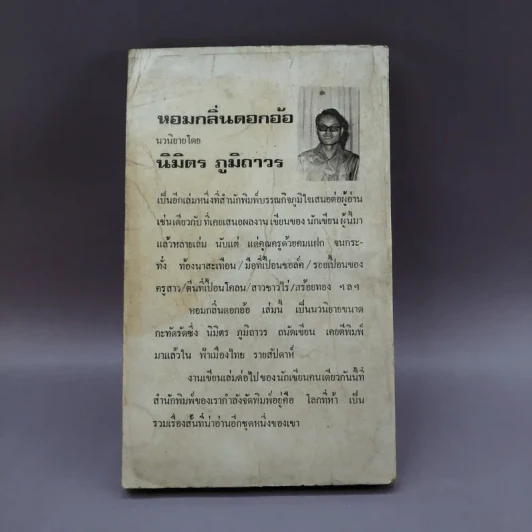 หอมกลิ่นดอกอ้อ
นวนิยายโดย
นิมิตร ภูมิถาวร
เป็นอีกเล่มหนึ่งที่สำนักพิมพ์บรรณกิจภูมิใจเสนอต่อผู้อ่าน
เช่นเดียวกับ ที่เคยเสนอผลงาน เขียนของ นักเขียน ผู้นี้มา
แล้วหลายเล่ม นับแต่ แด่คุณครูด้วยคมแฝก จนกระ-
ทั่ง ท้องนาสะเทือน/มือที่เปื้อนชอล์ค/รอยเปื้อนของ
ครูสาว/ตีนที่เปื้อนโคลน/สาวชาวไร่/สร้อยทอง ฯลฯ
หอมกลิ่นดอกอ้อ เล่มนี้ เป็นนวนิยายขนาด
กะทัดรัดซึ่ง นิมิตร ภูมิถาวร ถนัดเขียน เคยตีพิมพ์
มาแล้วใน ฟ้าเมืองไทย รายสัปดาห์
งานเขียนเล่มต่อไป ของนักเขียนคนเดียวกันนี้ที่
สำนักพิมพ์ของเรากำลังจัดพิมพ์อยู่คือ โลกที่ห้า เป็น
รวมเรื่องสั้นที่น่าอ่านอีกชุดหนึ่งของเขา